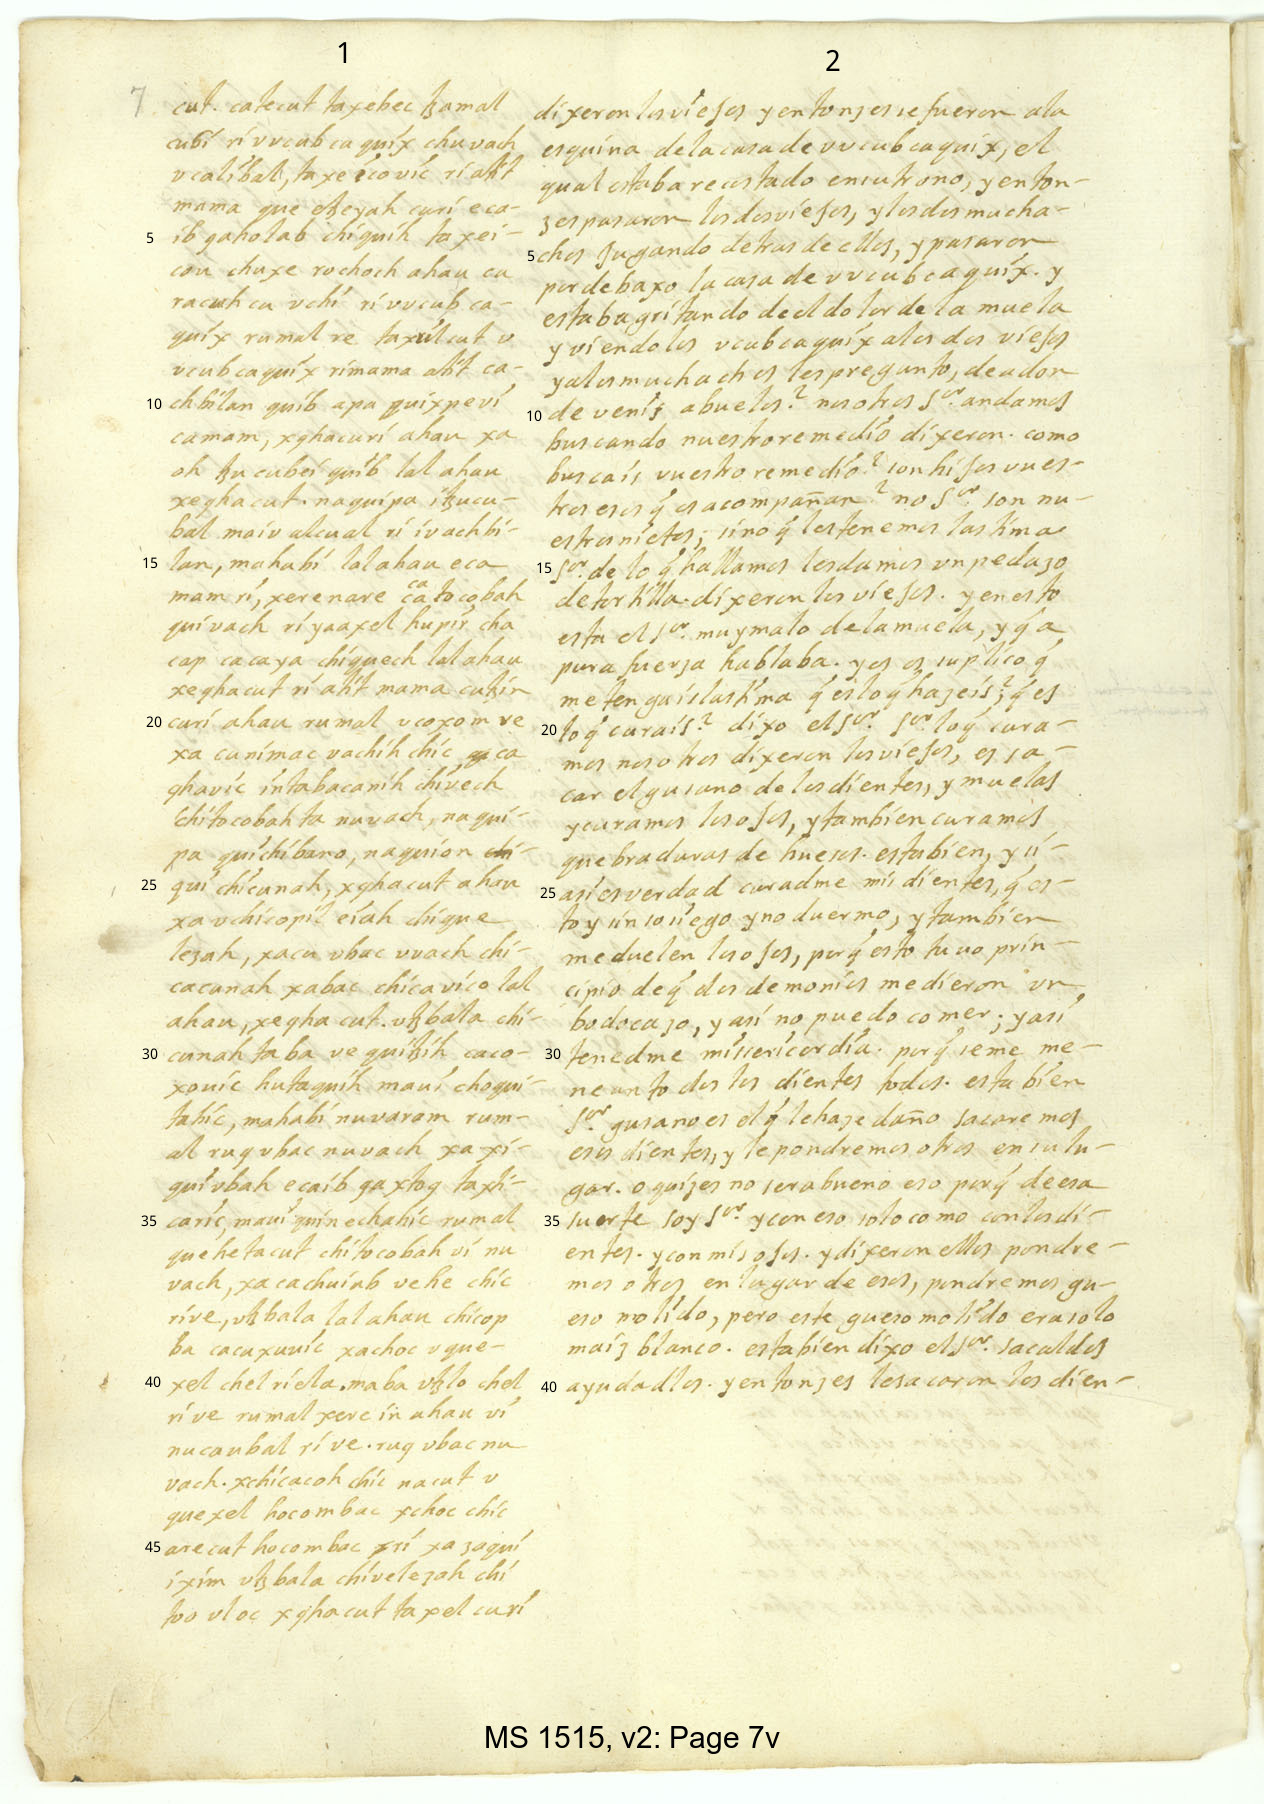 1
7. cut. catecut taxebec tzamal
cubi ri vvcub ca quix chuvach
v calibal, taxe ecovic ri atit
mama que etzeyah curi eca-
5 ib qaholab chiquih taxei-
cou chuxe rochoch ahau ca
racuh ca vchi ri vvcub ca-
quix rumal re taxril cut v
vcub caquix rimama atit ca-
10 chbilan quib apa quixpevi
camam, xqhacuri ahau xa
oh tzucubei quib lal ahau
xeqhacut. naquipa itzucu-
bal maiv alcual ri ivachbi-
15 lan, mahabi lal ahau eca
mam ri, xerenare ca ca tocobah
quivach ri yaaxel hupir, cha
cap cacaya chiquech lal ahau
xeqhacut ri atit mama cutzin
20 curi ahau rumal vcoxom re
xa cunimac vachih chic, ca
qhavic intabacanih chivech
chitocobah ta nuvach, naqui-
pa quichibano, naquion chi-
25 qui chicunah, xqhacut ahau
xavchicopil eiah chique
lezah, xacu vbac vvach chi-
cacunah xabac chicavico lal
ahau, xeqha cut. vtzbala chi-
30 cunah taba ve quitzih caco-
xouic hutaquih maui choqui-
tahic, mahabi nuvaram rum-
al ruq vbac nuvach xaxi-
quivbah ecaib qaxtoq taxti-
35 caric, maui quinechahic rumal
quehetacut chitocobah vi nu
vach, xacachuiub vehe chic
rive, vtzbala lal ahau chicop
ba cacuxuuic xachoc vque-
40 xel chel riela. maba vtzlo chel
rive rumal xere in ahau vi
nucaubal ri ve. ruq vbac nu
vach. xchicacoh chic nacut v
quexel hocom bac xchoc chic
45 arecut hocom bac xri xa zaqui
ixim vtzbala chivelezah chi
too vloc xqhacut taxel curi
2
dixeron los viejos y entonzes se fueron ala
esquina de la casa de vvcub caquix, el
qual estaba recostado en su trono, y enton-
zes pasaron los dos viejos, y los dos mucha-
5 chos jugando detras de ellos, y pasaron
por debaxo la casa de vvcub caquix. y
estaba gritando de el dolor de la muela
y viendolos vcub caquix a los dos viejos
y a los muchachos les pregunto, de adon
10 de veniz abuelos? nosotros sor. andamos
buscando nuestro remedio dixeron. como
buscais vuestro remedio? son hijos vues-
tros esos q̃ os acompañan? no sor son nu-
estros nietos; sino q̃ les tenemos lastima
15 sor. de lo q̃ hallamos les damos vn pedazo
de tortilla. dixeron los viejos. y en esto
esta el sor. muy malo de la muela, y q̃ a
pura fuerza hablaba. yo os suplico q̃
me tengais lastima q̃ es lo q̃ hazeis? q̃ es
20 lo q̃ curais? dixo el sor. sor lo q̃ cura-
mos nosotros dixeron los viejos, es sa-
car el gusano de los dientes, y muelas
y curamos los ojos, y tambien curamos
quebraduras de huesos. esta bien, y si-
25 asi es verdad curadme mis dientes, q̃ es-
toy sin sosiego y no duermo, y tambien
me duelen los ojos, porq̃ esto tuvo prin-
cipio de q̃ dos demonios me dieron vn
bodocazo, y asi no puedo comer; y asi
30 tenedme missericordia. porq̃ se me me-
nean todos los dientes todos. esta bien
sor. gusano es el q̃ le haze daño sacaremos
esos dientes, y le pondremos otros en su lu-
gar. o quizes no sera bueno eso porq̃ de esa
35 suerte soy sor. y con eso solo como con los di-
entes. y con mis ojos. y dixeron ellos pondre-
mos otros en lugar de esos, pondremos gu-
eso molido, pero este gueso molido era solo
maiz blanco. esta bien dixo el sor. sacaldos
40 ayudadlos. y entonzes le sacaron los dien-
MS 1515, v2: Page 7v